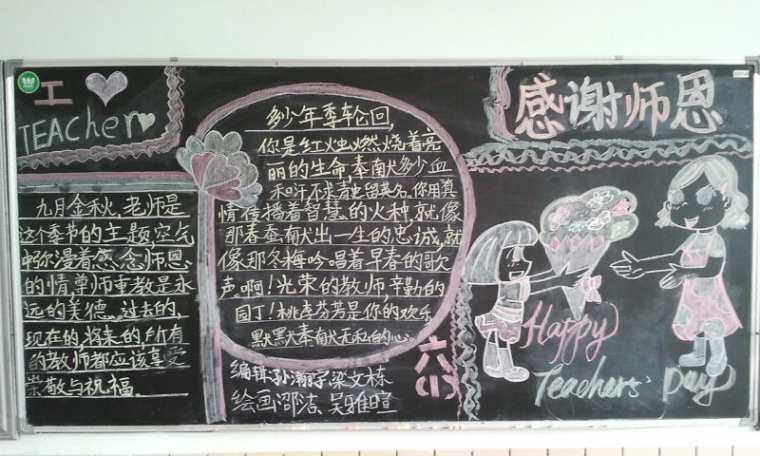 I
TEACHER
九月金秋,老师是
这个季节的主题,空气
中弥漫着感念师恩
的情尊师重教是永
远的美德。过去的,
现在的,将来的,所有
的教师都应该享受
崇敬与祝福。
多少年季轮回,
你是红火虫燃烧着亮
丽的生命奉献多少血
和汗不求青史留英名。你用真
情传播着智慧的火种,就像
那春蚕献出一生的忠诚,就
像那冬梅吟唱着早春的歌
声。啊!光荣的教师,辛勤的
园丁!桃李芬芳是你的欢乐
默默奉献无私的心。
编辑:孙瀚宇 梁文栋
绘画:邵洁、吴雅暄
六(1)
感谢师恩
Happy
Teachers' Day